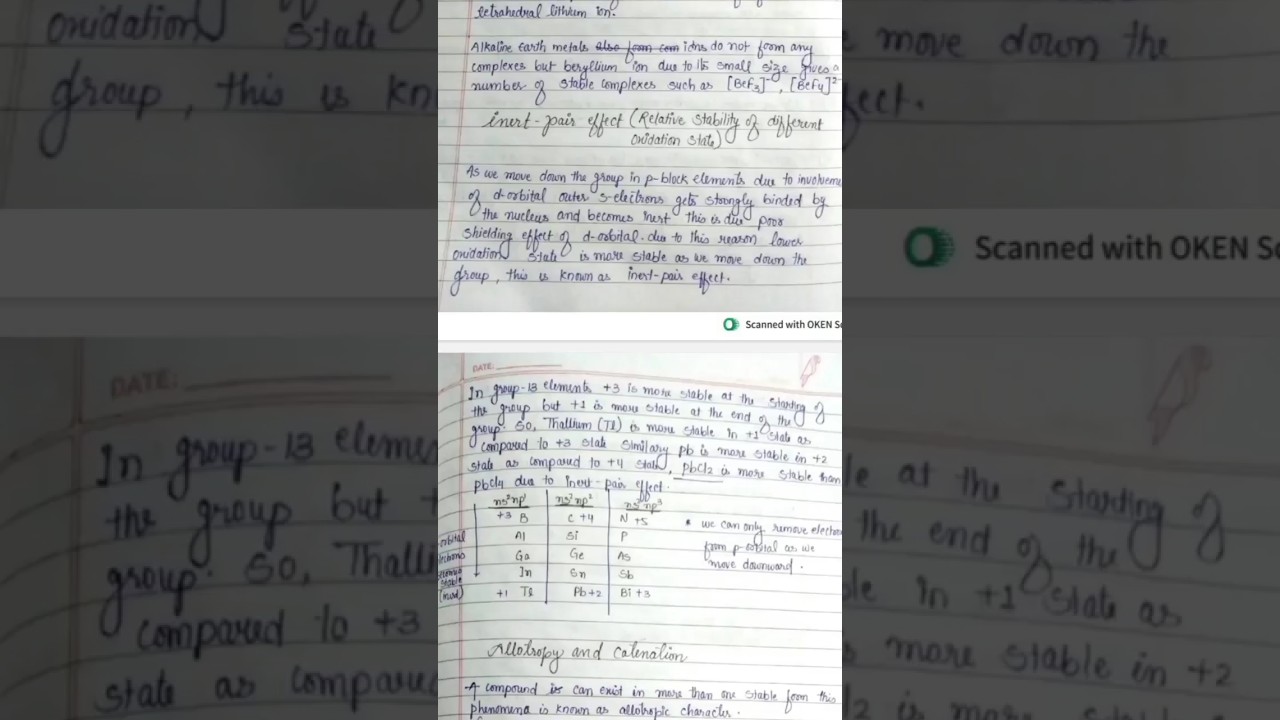 tetrahedral lithium ion.
Alkaline earth metals also form com idns do not form any
complexes but beryllium ion due to its small size gives a
number of stable complexes such as [BeF3]⁻, [BeF4]²⁻
inert-pair effect (Relative stability of different
oxidation state)
As we move down the group in p-block elements due to involveme
of d-orbital outer s-electrons gets strongly binded by
the nucleus and becomes inert this is due poor
shielding effect of d-orbital. due to this reason lower
oxidation state is more stable as we move down the
group, this is known as inert-pair effect.
Scanned with OKEN Sc
DATE:
In group-13 elements +3 is more stable at the starting of
the group but +1 is more stable at the end of the
group. So, Thallium (Tl) is more stable in +1 state as
compared to +3 state similary pb is more stable in +2
state as compared to +4 state, pbcl2 is more stable than
pbcl4 due to inert-pair effect.
ns²np¹ ns²np² ns²np³
+3 B C +4 N +5
Al Si P
Ga Ge As
In Sn Sb
+1 Tl Pb+2 Bi +3
orbital
lectrons
stable
* we can only remove electro
from p-orbital as we
move downward.
Allotropy and catenation
A compound is can exist in more than one stable form this
phenomena is known as allotropic character.
oxidation state
group, this is kn
move down the
fect.
Scanned with OKEN Sc
DATE:
In group-13 eleme
the group but
group. So, Thalli
compared to +3
state as compare
le at the starting of
the end of the
ble in +1 state as
more stable in +2